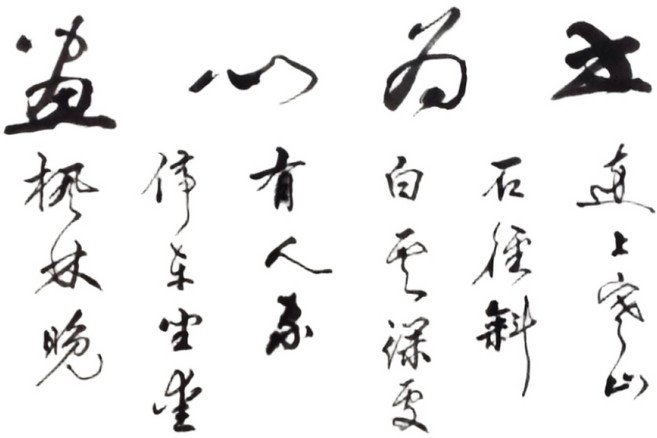 書為心畫
遠上寒山
石徑斜
白雲深處
有人家
停車坐愛
楓林晚